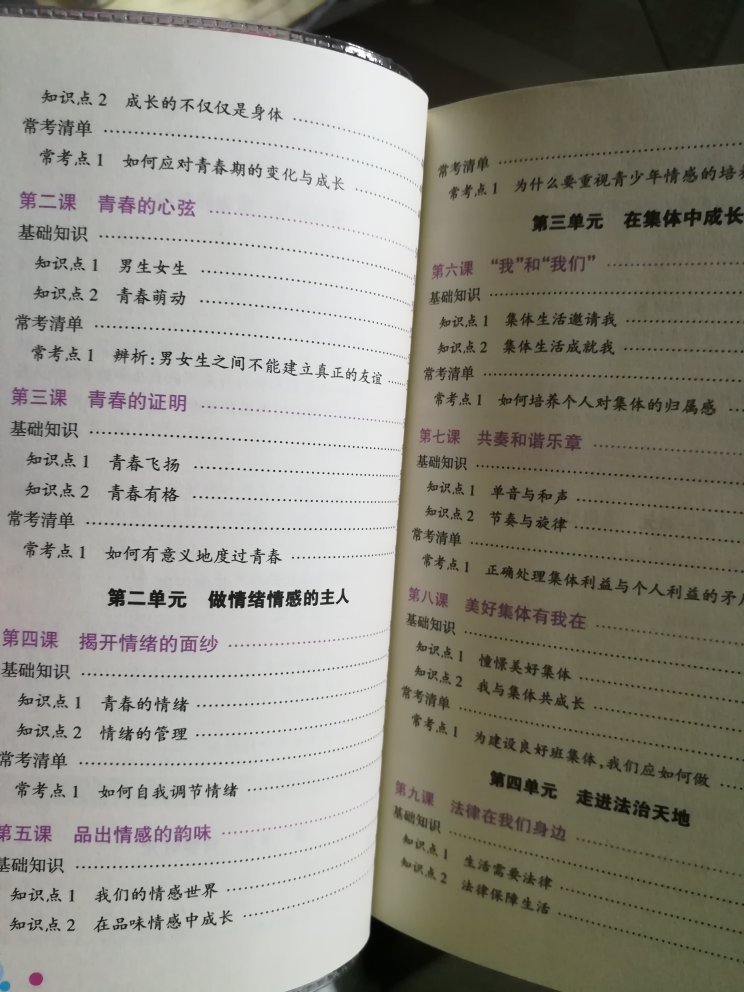 知识点2 成长的不仅仅是身体
常考清单
常考点1 如何应对青春期的变化与成长
第二课 青春的心弦
基础知识
知识点1 男生女生
知识点2 青春萌动
常考清单
常考点1 辨析:男女生之间不能建立真正的友谊
第三课 青春的证明
基础知识
知识点1 青春飞扬
知识点2 青春有格
常考清单
常考点1 如何有意义地度过青春
第二单元 做情绪情感的主人
第四课 揭开情绪的面纱
基础知识
知识点1 青春的情绪
知识点2 情绪的管理
常考清单
常考点1 如何自我调节情绪
第五课 品出情感的韵味
基础知识
知识点1 我们的情感世界
知识点2 在品味情感中成长
常考清单
常考点1 为什么要重视青少年情感的培
第三单元 在集体中成长
第六课 “我”和“我们”
基础知识
知识点1 集体生活邀请我
知识点2 集体生活成就我
常考清单
常考点1 如何培养个人对集体的归属感
第七课 共奏和谐乐章
基础知识
知识点1 单音与和声
知识点2 节奏与旋律
常考清单
常考点1 正确处理集体利益与个人利益的矛
第八课 美好集体有我在
基础知识
知识点1 憧憬美好集体
知识点2 我与集体共成长
常考清单
常考点1 为建设良好班集体,我们应如何做
第四单元 走进法治天地
第九课 法律在我们身边
基础知识
知识点1 生活需要法律
知识点2 法律保障生活